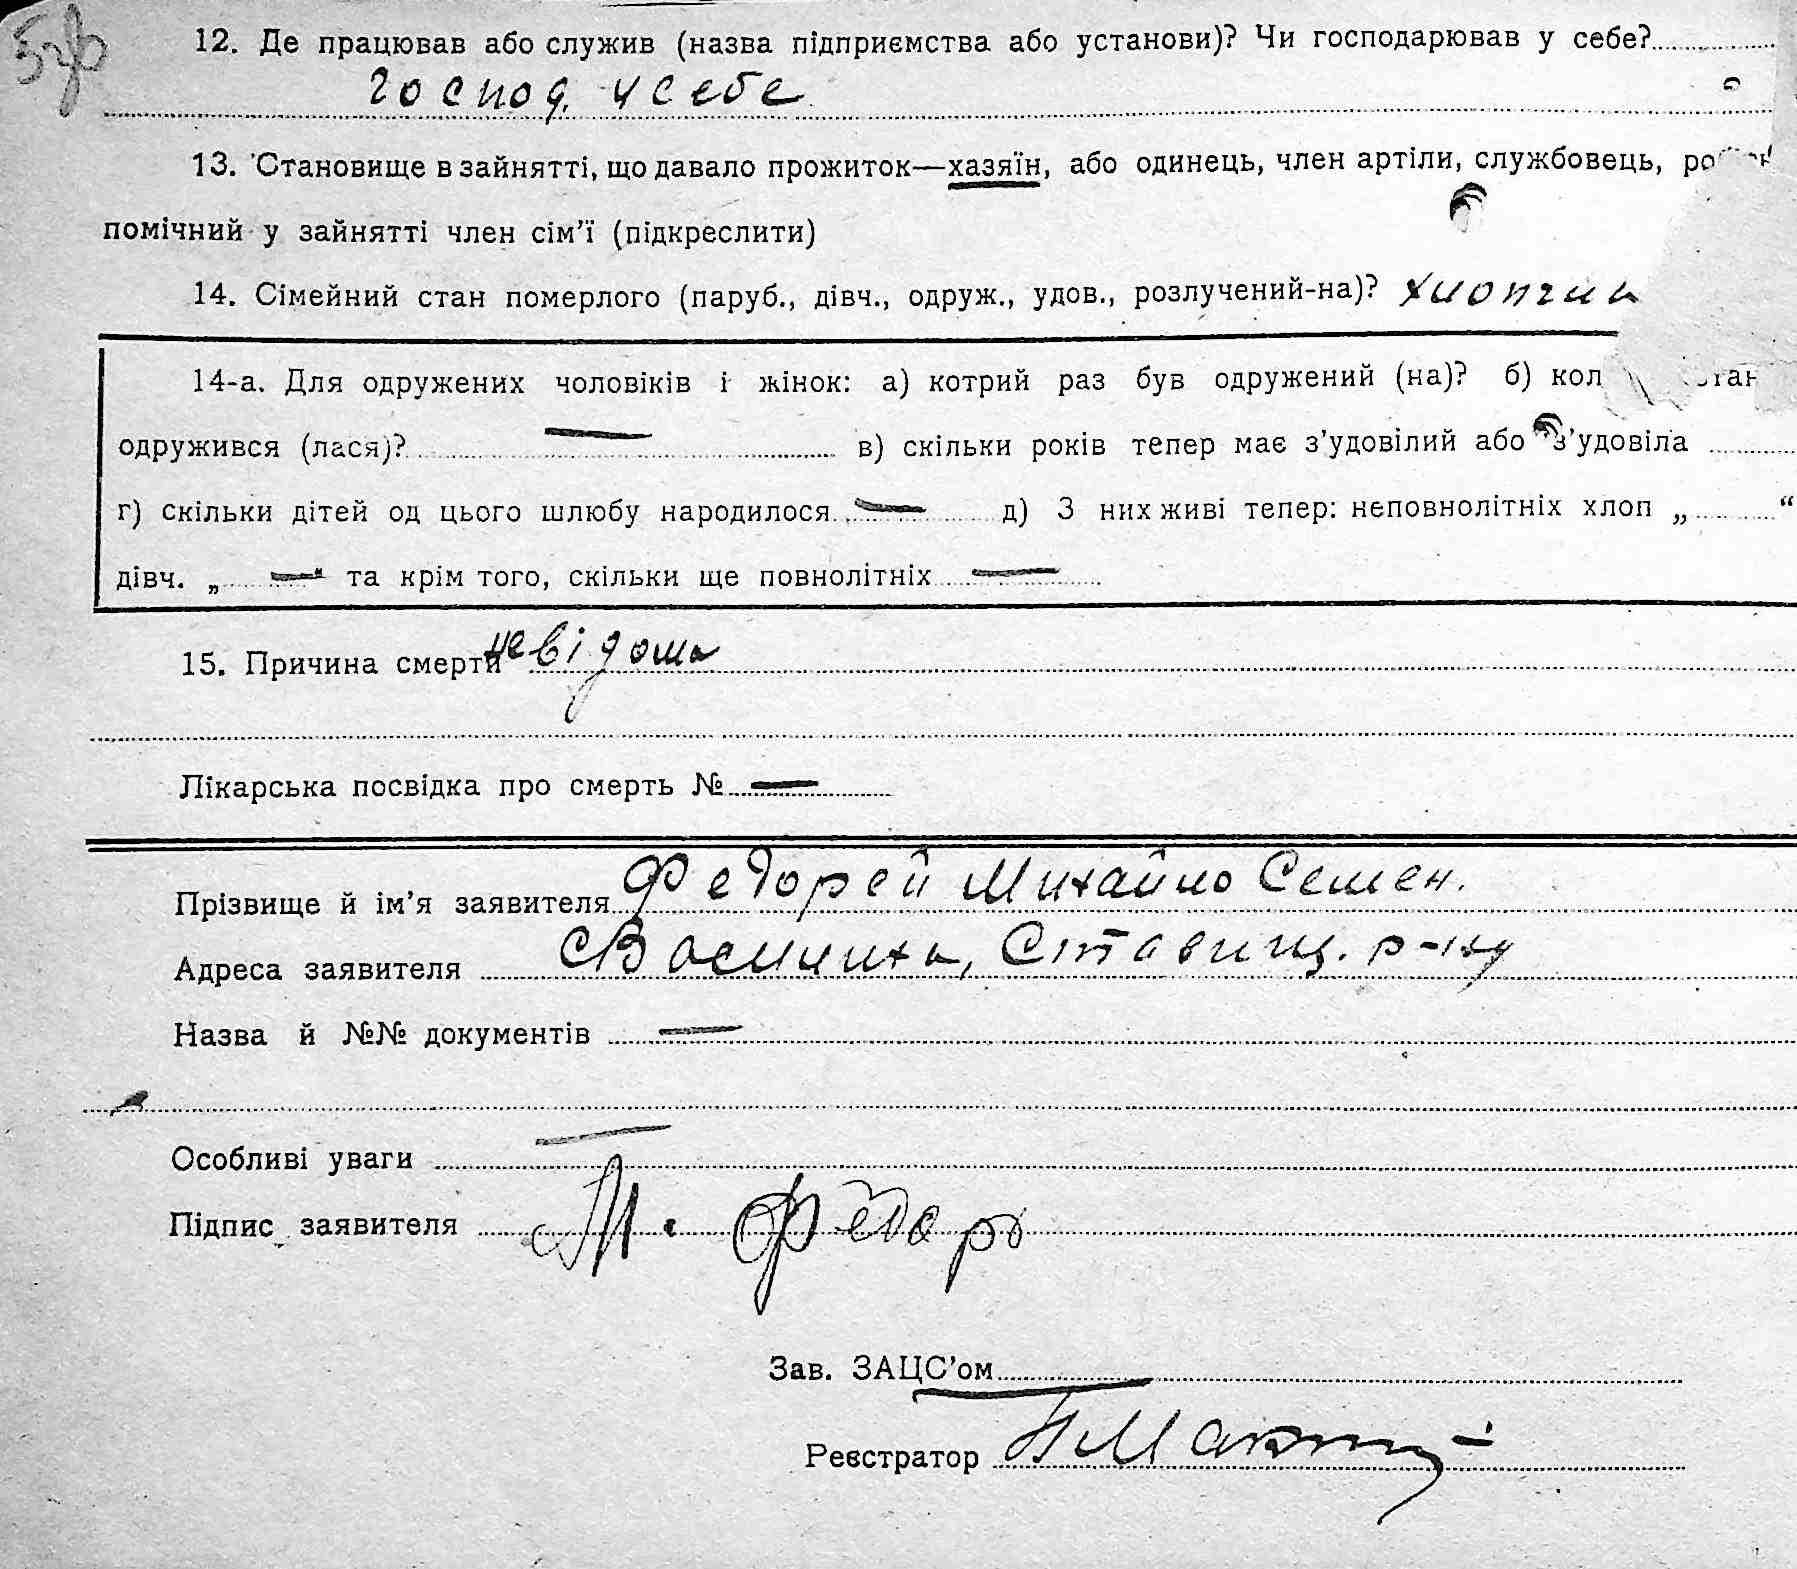 57б
12. Де працював або служив (назва підприємства або установи)? Чи господарював у себе?
господ. у себе
13. Становище в зайнятті, що давало прожиток—хазяїн, або одинець, член артіли, службовець,
помічний у зайнятті член сім'ї (підкреслити)
14. Сімейний стан померлого (паруб., дівч., одруж., удов., розлучений-на)? хлопчик
14-а. Для одружених чоловіків і жінок: а) котрий раз був одружений (на)? б)
одружився (лася)? — в) скільки років тепер має з'удовілий або з'удовіла
г) скільки дітей од цього шлюбу народилося — д) З них живі тепер: неповнолітніх хлоп „ “
дівч. „ — “ та крім того, скільки ще повнолітніх —
15. Причина смерти невідома
Лікарська посвідка про смерть № —
Прізвище й ім'я заявителя Федорей Михайло Семен.
Адреса заявителя Ставищ. р-ну
Назва й №№ документів —
Особливі уваги —
Підпис заявителя М. Федор
Зав. ЗАЦС'ом
Реєстратор